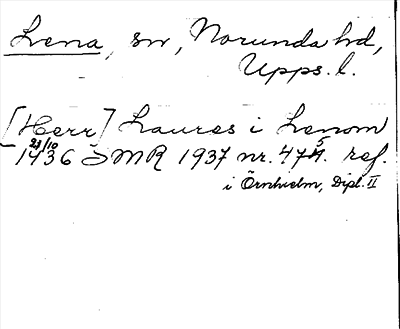 Lena, sn, Norunda hd,
Upps. l.
[Herr] Laures i Lenom
23/10
1436 SMR 1937 nr. 475. ref.
i Örnhielm, Dipl. II